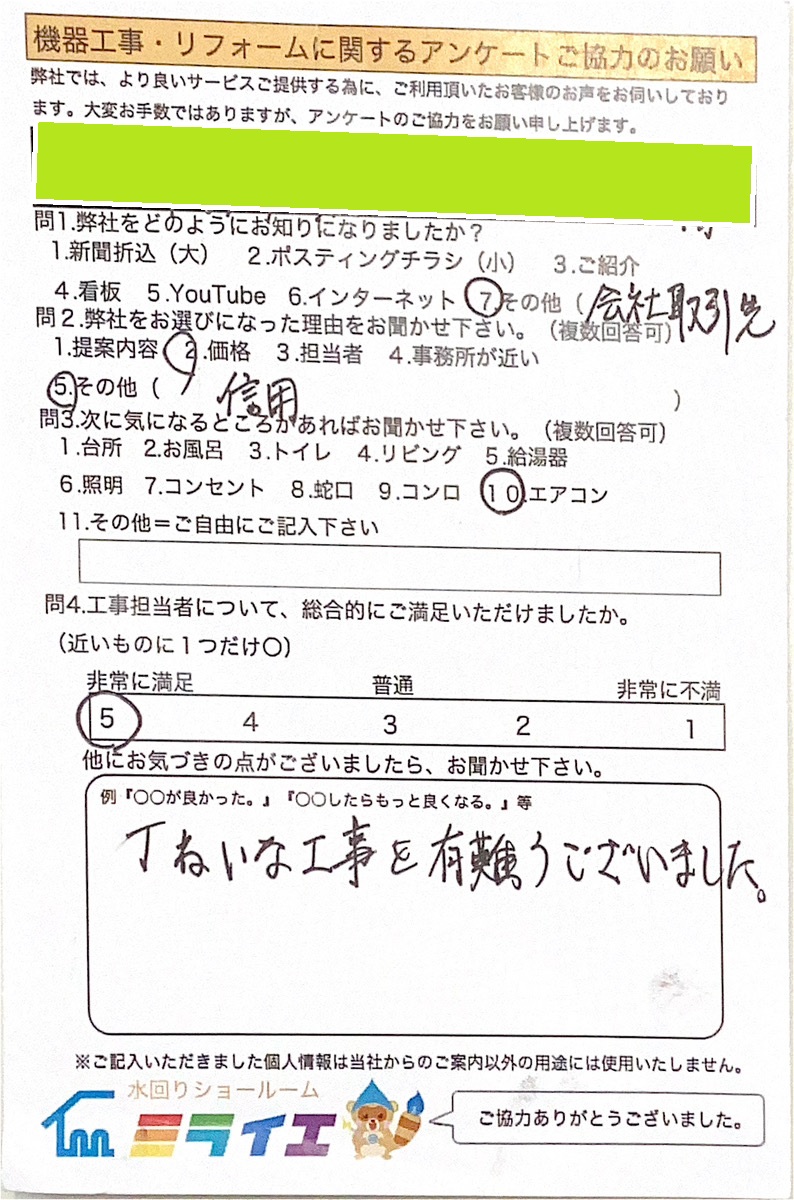 機器工事・リフォームに関するアンケートご協力のお願い
弊社では、より良いサービスご提供する為に、ご利用頂いたお客様のお声をお伺いしており
ます。大変お手数ではありますが、アンケートのご協力をお願い申し上げます。
問1.弊社をどのようにお知りになりましたか？
1.新聞折込（大） 2.ポスティングチラシ（小） 3.ご紹介
4.看板 5.YouTube 6.インターネット 7.その他（会社取引先
問2.弊社をお選びになった理由をお聞かせ下さい。（複数回答可）
1.提案内容 2.価格 3.担当者 4.事務所が近い
5.その他（ 信用 ）
問3.次に気になるところがあればお聞かせ下さい。（複数回答可）
1.台所 2.お風呂 3.トイレ 4.リビング 5.給湯器
6.照明 7.コンセント 8.蛇口 9.コンロ 10.エアコン
11.その他＝ご自由にご記入下さい
問4.工事担当者について、総合的にご満足いただけましたか。
（近いものに1つだけ〇）
非常に満足 普通 非常に不満
5 4 3 2 1
他にお気づきの点がございましたら、お聞かせ下さい。
例『〇〇が良かった。』『〇〇したらもっと良くなる。』等
丁ねいな工事を有難うございました。
※ご記入いただきました個人情報は当社からのご案内以外の用途には使用いたしません。
水回りショールーム
ミライエ
ご協力ありがとうございました。